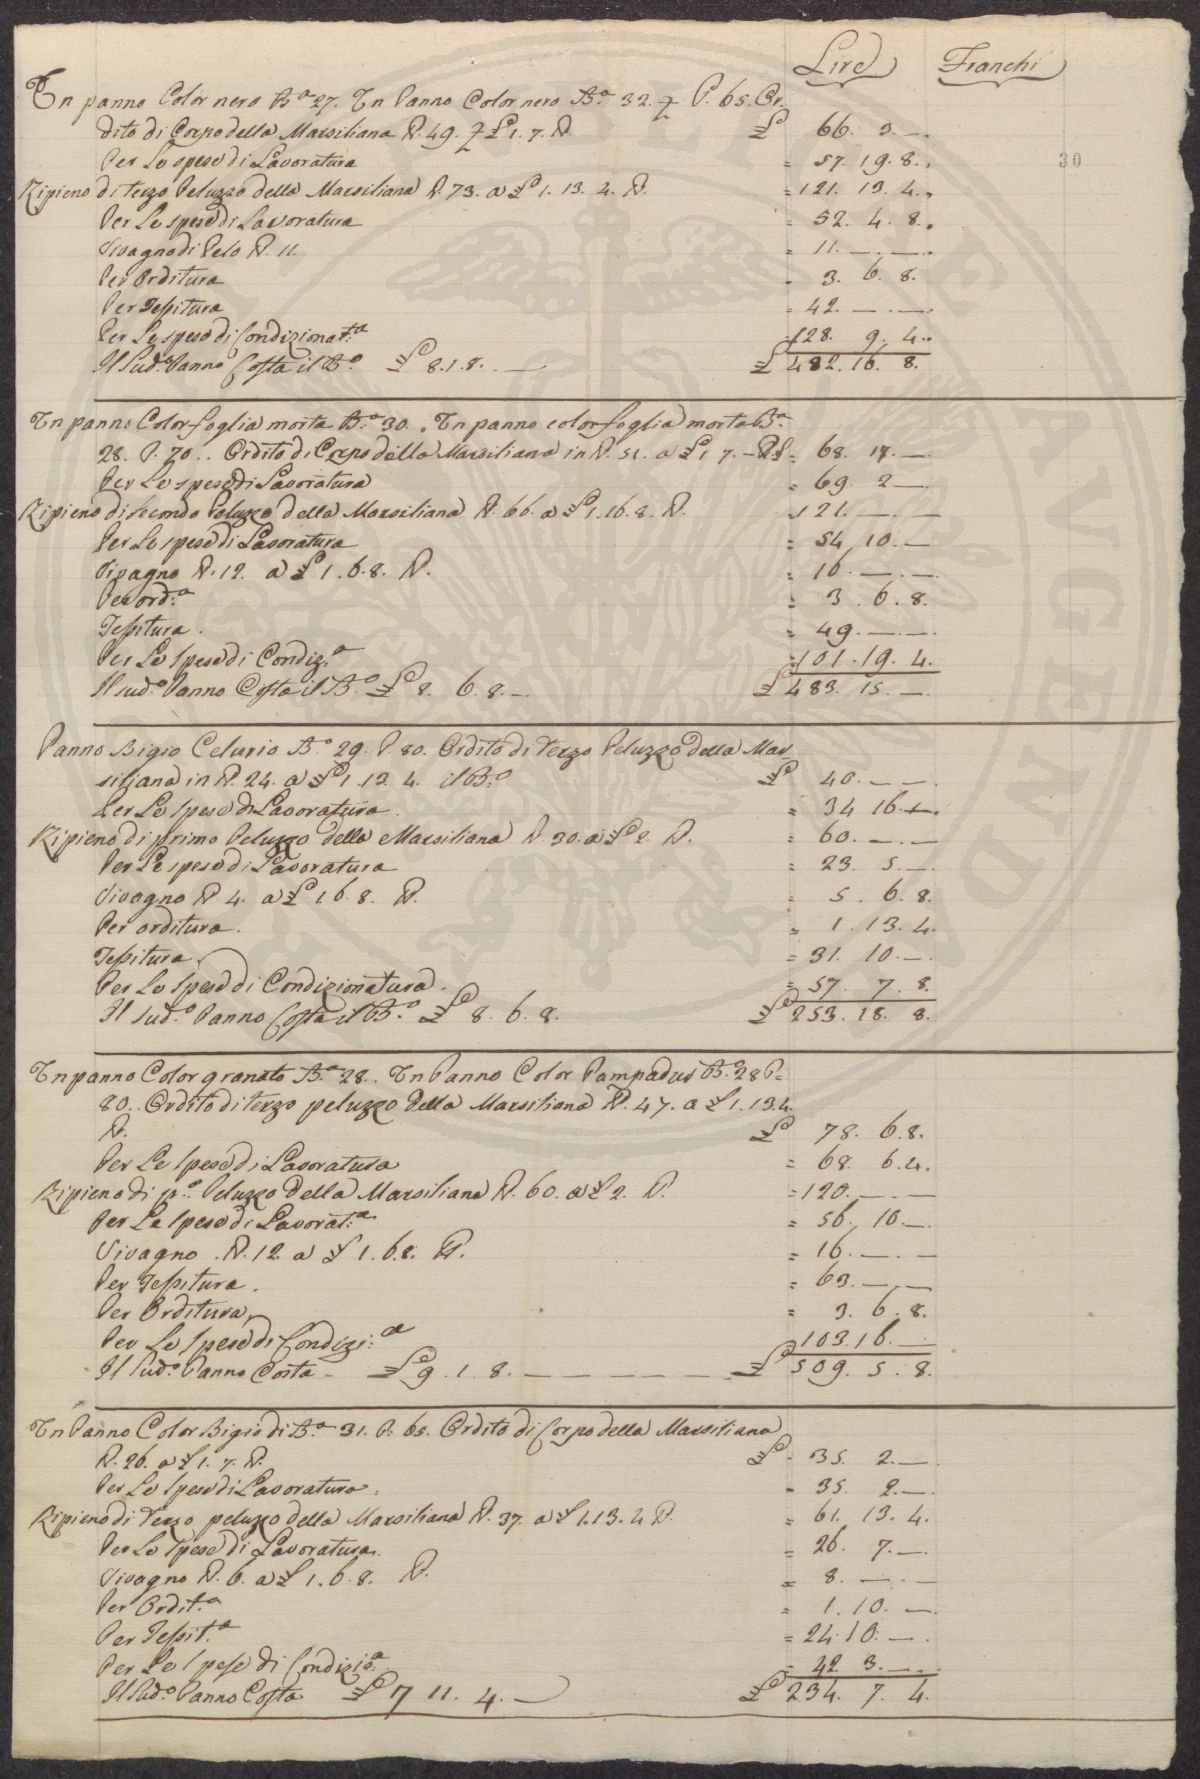 Lire Franchi
Un panno Color nero B.a 27. Un Panno Color nero B.a 32. P. 65. Or
dito di Corpo della Marsiliana lb. 49. £ 1. 7. lb. £ 66. 3. —
Per Le spese di Lavoratura = 57. 19. 8.
30
Ripieno di terzo Peluzzo della Marsiliana lb. 73. a £ 1. 13. 4. lb. = 121. 13. 4.
Per Le spese di Lavoratura = 52. 4. 8.
Vivagno di Pelo lb. 11. = 11. — . —
Per Orditura = 3. 6. 8.
Per Tessitura = 42. — . —
Per Le spese di Condizionat.a 128. 9. 4.
Il Sud.o Panno Costa il B.o £ 8. 1. 8. — £ 482. 16. 8.
Un panno Color foglia morta B.a 30. Un panno color foglia morta B.a
28. P. 70. Ordito di Corpo della Marsiliana in lb. 51. a £ 1. 7. — lb. £ = 68. 17. —
Per Le spese di Lavoratura = 69. 2 —
Ripieno di Secondo Peluzzo della Marsiliana lb. 66. a £ 1. 16. 8. lb. 121. — . —
Per Le spese di Lavoratura = 54. 10. —
Vivagno lb. 12. a £ 1. 6. 8. lb. = 16. — . —
Per ord.a = 3. 6. 8.
Tessitura. = 49. — —
Per Le spese di Condiz.a 101. 19. 4.
Il sud.o Panno Costa il B.o £ 8. 6. 8. — £ 483. 15. —
Panno Bigio Celurio B.a 29. P. 80. Ordito di Terzo Peluzzo della Mar
siliana in lb. 24. a £ 1. 13. 4. il B.o £ 40. — —
Per Le spese di Lavoratura. = 34 16. —
Ripieno di primo Peluzzo della Marsiliana lb. 30. a £ 2. lb. = 60. — . —
Per Le spese di Lavoratura = 23. 5. —
Vivagno lb. 4. a £ 1 6. 8. lb. = 5. 6. 8.
Per orditura. = 1. 13. 4.
Tessitura. = 31. 10. —
Per Le spese di Condizionatura. = 57. 7. 8.
Il sud.o Panno Costa il B.o £ 8. 6. 8. £ 253. 18. 8.
Un panno Color granato B.a 28. Un Panno Color Pampadur B.a 28 P.
80. Ordito di terzo peluzzo della Marsiliana lb. 47. a £ 1. 13. 4.
lb. £ 78. 6. 8.
Per Le spese di Lavoratura = 68. 6. 4.
Ripieno di p.o Peluzzo della Marsiliana lb. 60. a £ 2. lb. = 120. — . —
Per Le spese di Lavorat.a = 56. 10. —
Vivagno lb. 12 a £ 1. 6. 8. lb. = 16. — . —
Per Tessitura. = 63. — . —
Per Orditura. = 3. 6. 8.
Per Le spese di Condizi.a 103. 16. —
Il Sud.o Panno Costa — £ 9. 1. 8. — — — — — £ 509. 5. 8.
Un Panno Color Bigio di B.a 31. P. 65. Ordito di Corpo della Marsiliana
lb. 26. a £ 1. 7. lb. £ 35. 2. —
Per Le spese di Lavoratura. = 35. 2. —
Ripieno di Terzo peluzzo della Marsiliana lb. 37. a £ 1. 13. 4 lb. = 61. 13. 4.
Per Le spese di Lavoratura. = 26. 7. —
Vivagno lb. 6. a £ 1. 6. 8. lb. = 8. — . —
Per Ordit.a = 1. 10. —
Per Tessit.a = 24. 10. — .
Per Le spese di Condizio.a = 42 3. — .
Il Sud.o Panno Costa £ 7 11. 4. — £ 234. 7. 4.